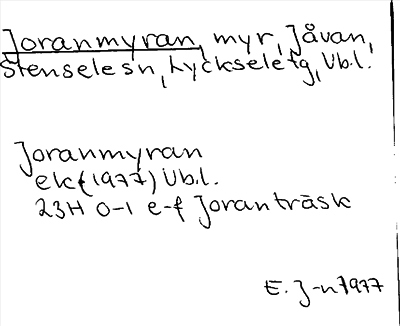 Joranmyran, myr, Jåvan,
Stensele sn, Lycksele tg, Vb.l.
Joranmyran
ek (1977) Vb.l.
23H 0-1 e-f Joranträsk
E. J-n 1977